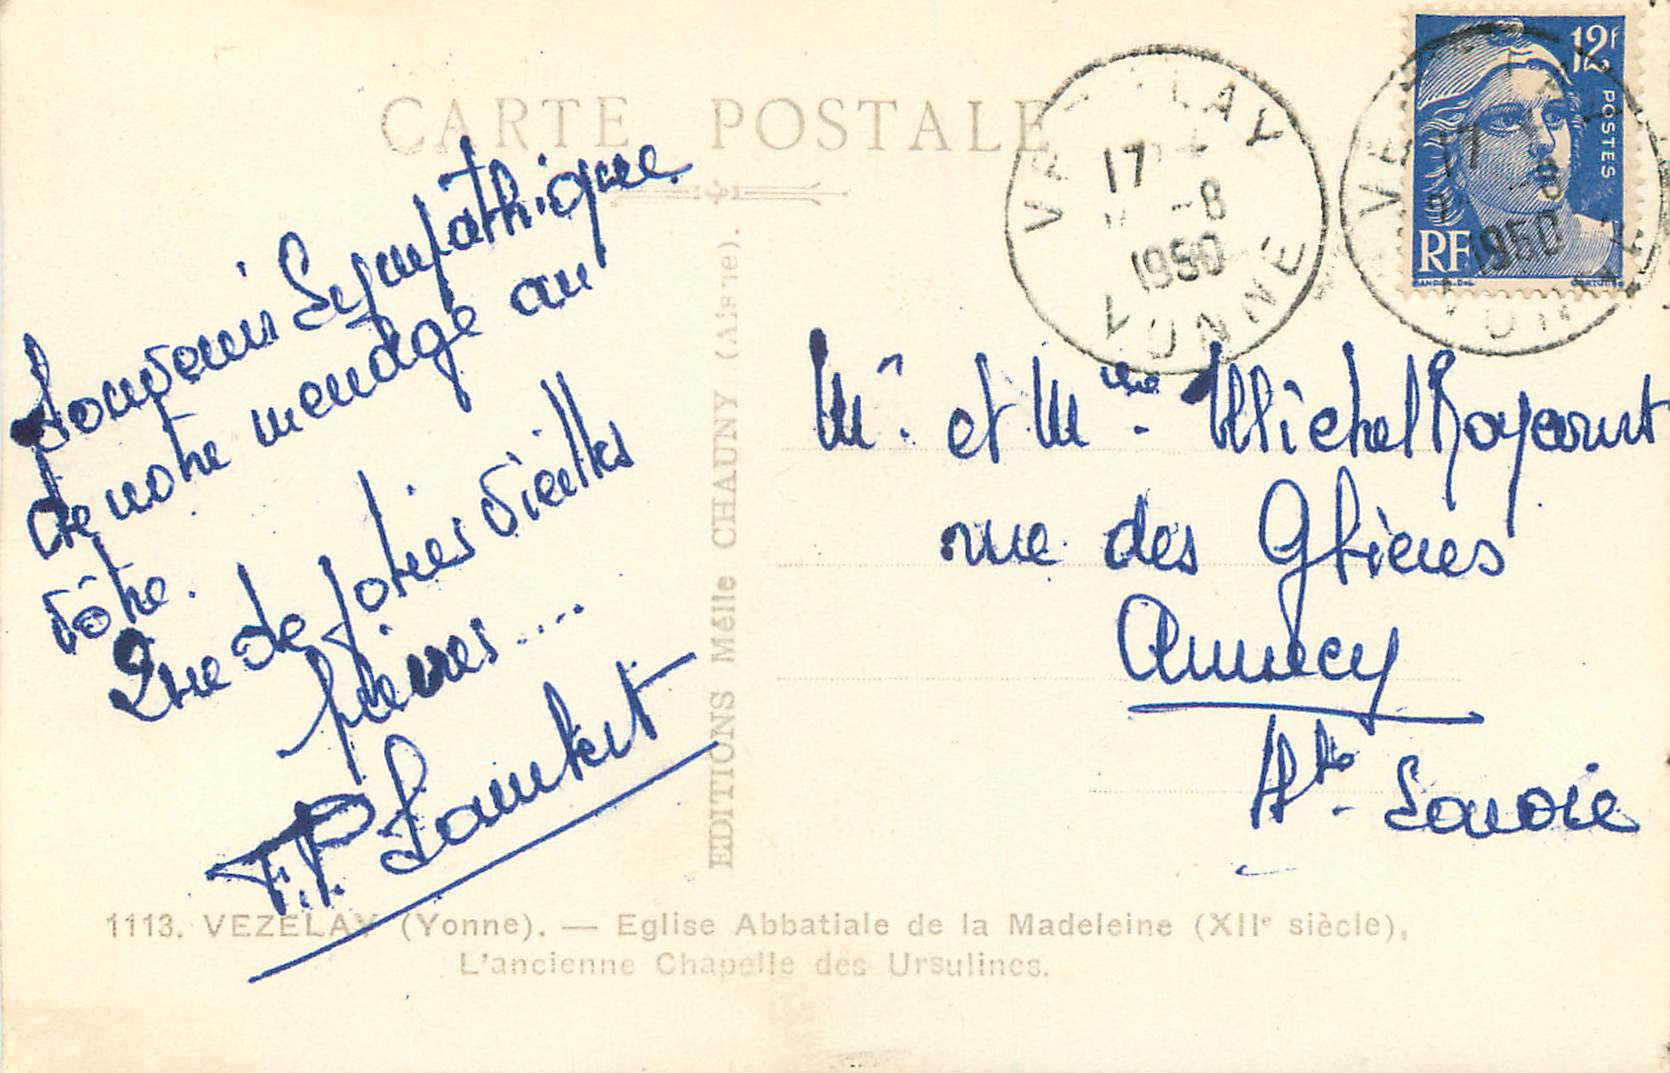 CARTE POSTALE
Souvenir Sympathique
de notre menage au
vôtre.
Que de jolies vieilles
pierres....
F.P.
VEZELAY
17 -8
1950
YONNE
12F
POSTES
RF
VEZELAY
17 -8
1950
YONNE
Mr. et Mme. Michel
rue des Glières
Annecy
Hte. Savoie
EDITIONS Mélle CHAUNY (Aisne).
1113. VEZELAY (Yonne). — Eglise Abbatiale de la Madeleine (XIIe siècle),
L'ancienne Chapelle des Ursulines.